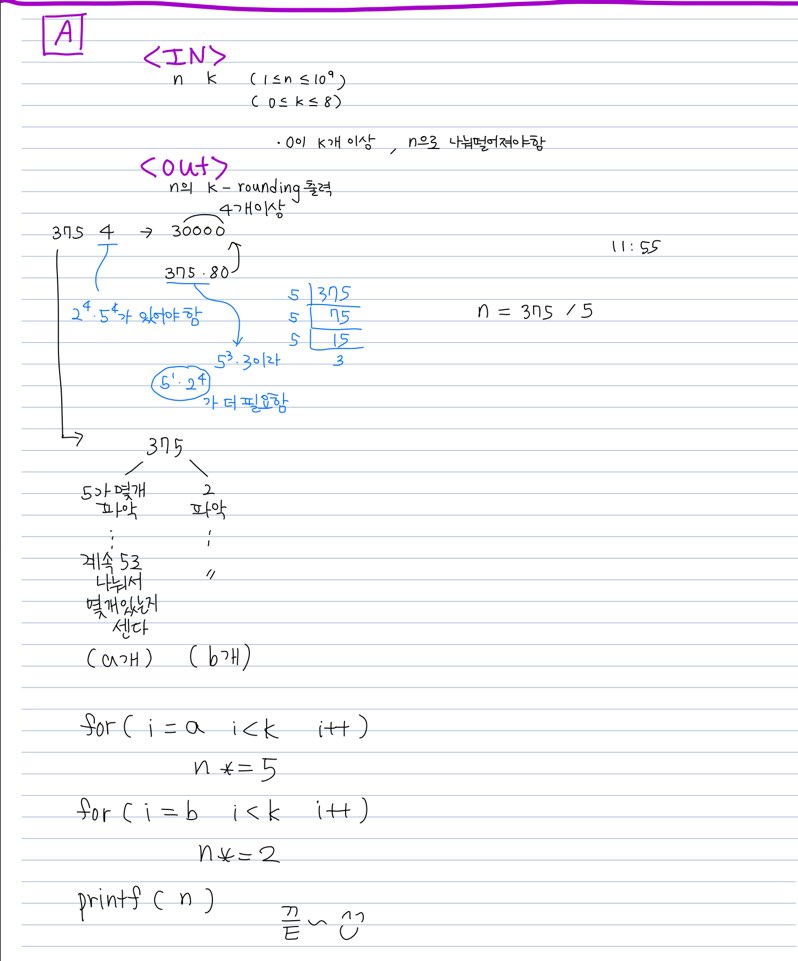 A
<IN>
n k (1≤n≤10⁹)
(0≤k≤8)
·0이 k개 이상, n으로 나눠떨어져야함
<out>
n의 k-rounding 출력
4개이상
375 4 → 30000
11:55
375·80
2⁴·5⁴가 있어야 함
5 375
5 75
5 15
3
n = 375 / 5
5³·3이라
5¹·2⁴
가 더 필요함
375
5가 몇개 2
파악 파악
계속 5로 〃
나눠서
몇개있는지
센다
(a개) (b개)
for( i=a i<k i++)
n *= 5
for( i=b i<k i++)
n *= 2
printf( n )
끝~